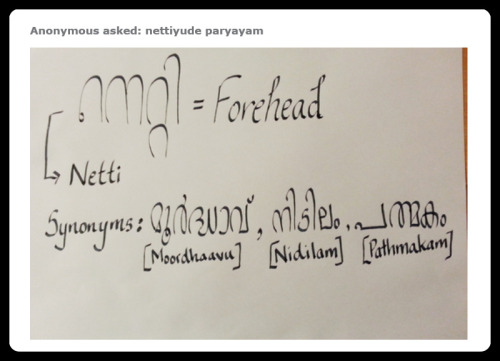 Anonymous asked: nettiyude paryayam
നെറ്റി = Forehead
Netti
Synonyms: മൂർദ്ധാവ്, നിടിലം, പത്മകം
[Moordhaavu] [Nidilam] [Pathmakam]